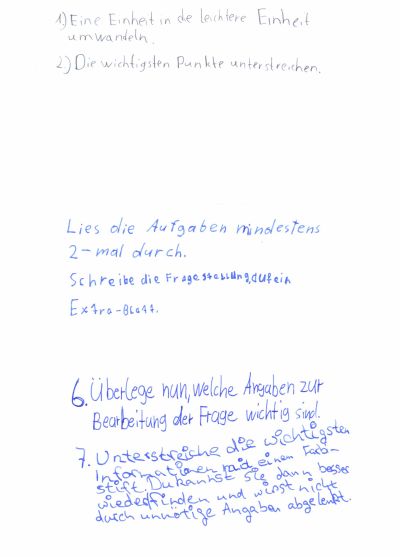 1) Eine Einheit in de leichtere Einheit
umwandeln.
2) Die wichtigsten Punkte unterstreichen.
Lies die Aufgaben mindestens
2-mal durch.
Schreibe die Fragestellung, auf ein
Extra-Blatt.
6. Überlege nun, welche Angaben zur
Bearbeitung der Frage wichtig sind.
7. Unterstreiche die wichtigsten
Informationen mid einen Farb-
stift. Du kannst sie dann besser
wiederfinden und wirst nicht
durch unnötige Angaben abgelenkt.